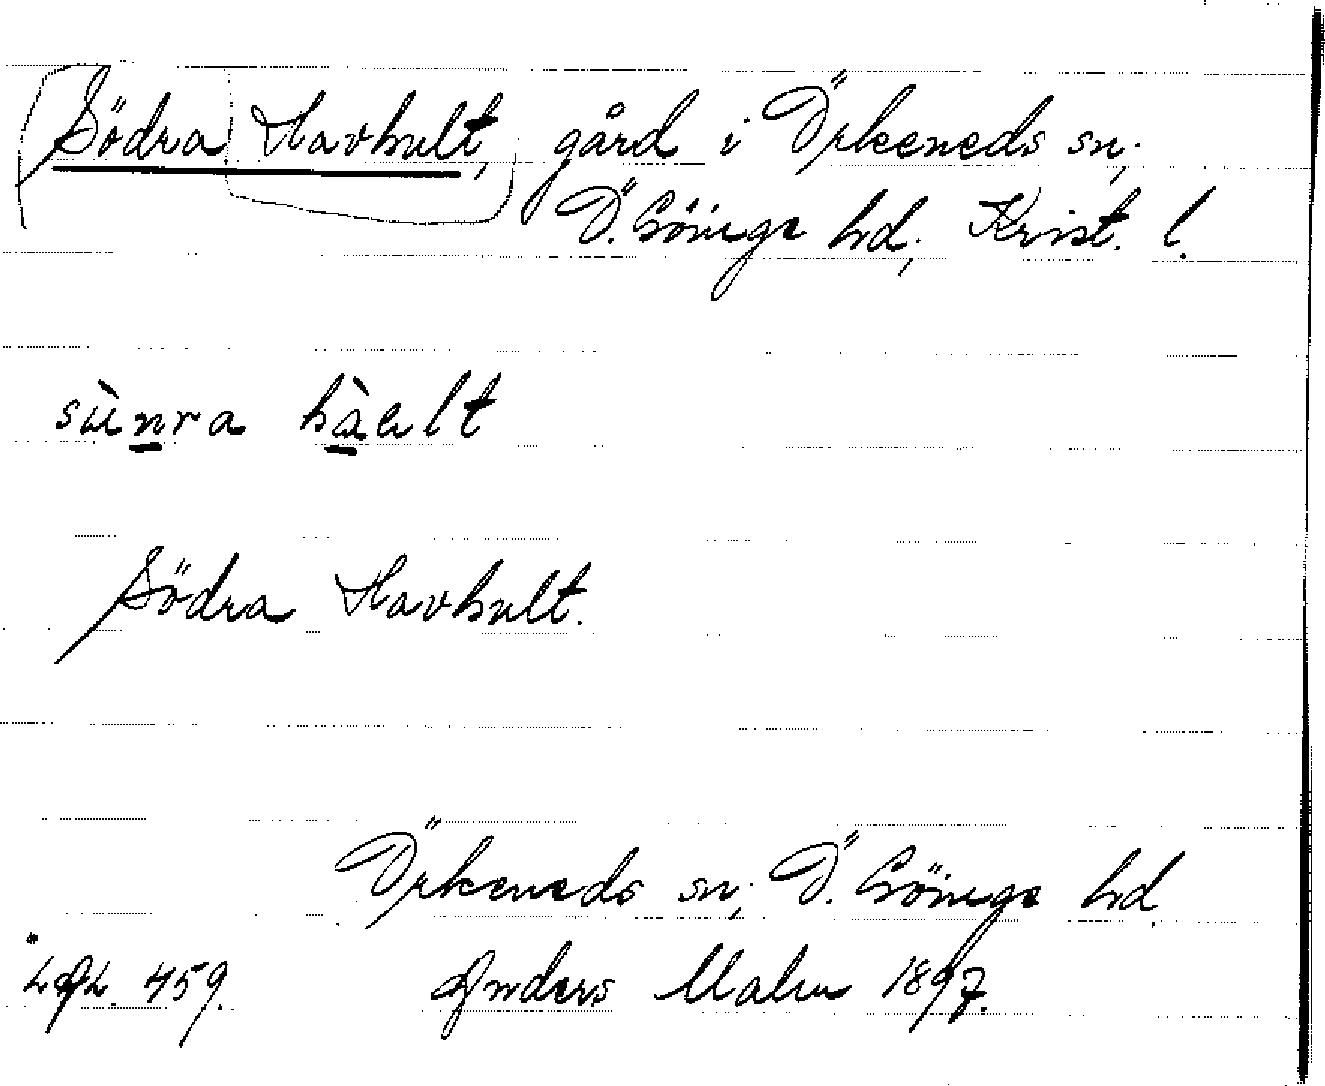 Södra Havhult, gård i Örkeneds sn;
Ö. Göinge hd; Krist. l.
sùnra hàult
Södra Havhult.
Örkeneds sn; Ö. Göinge hd.
459. Anders Malm 1897.